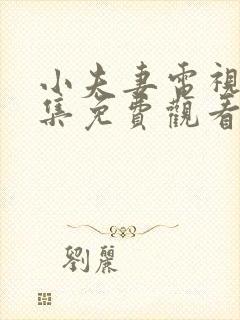 小夫妻電視
集免費觀看
劉麗